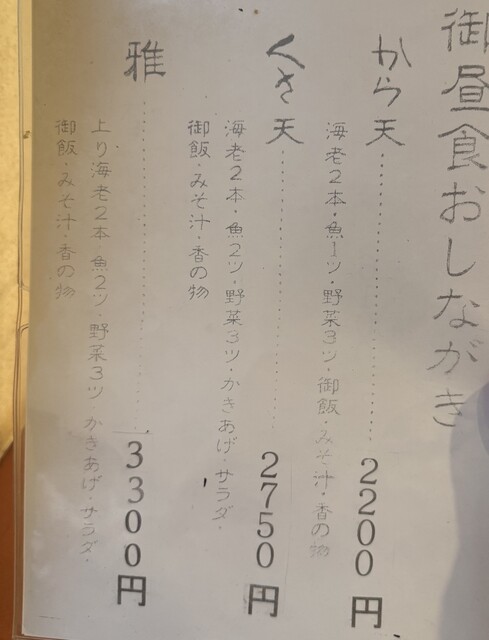 御昼食おしながき
から天…………2200円
海老2本・魚1ツ・野菜3ツ・御飯・みそ汁・香の物
くさ天…………2750円
海老2本・魚2ツ・野菜3ツ・かきあげ・サラダ・
御飯・みそ汁・香の物
雅…………3300円
上り海老2本 魚2ツ・野菜3ツ かきあげ・サラダ・
御飯・みそ汁・香の物